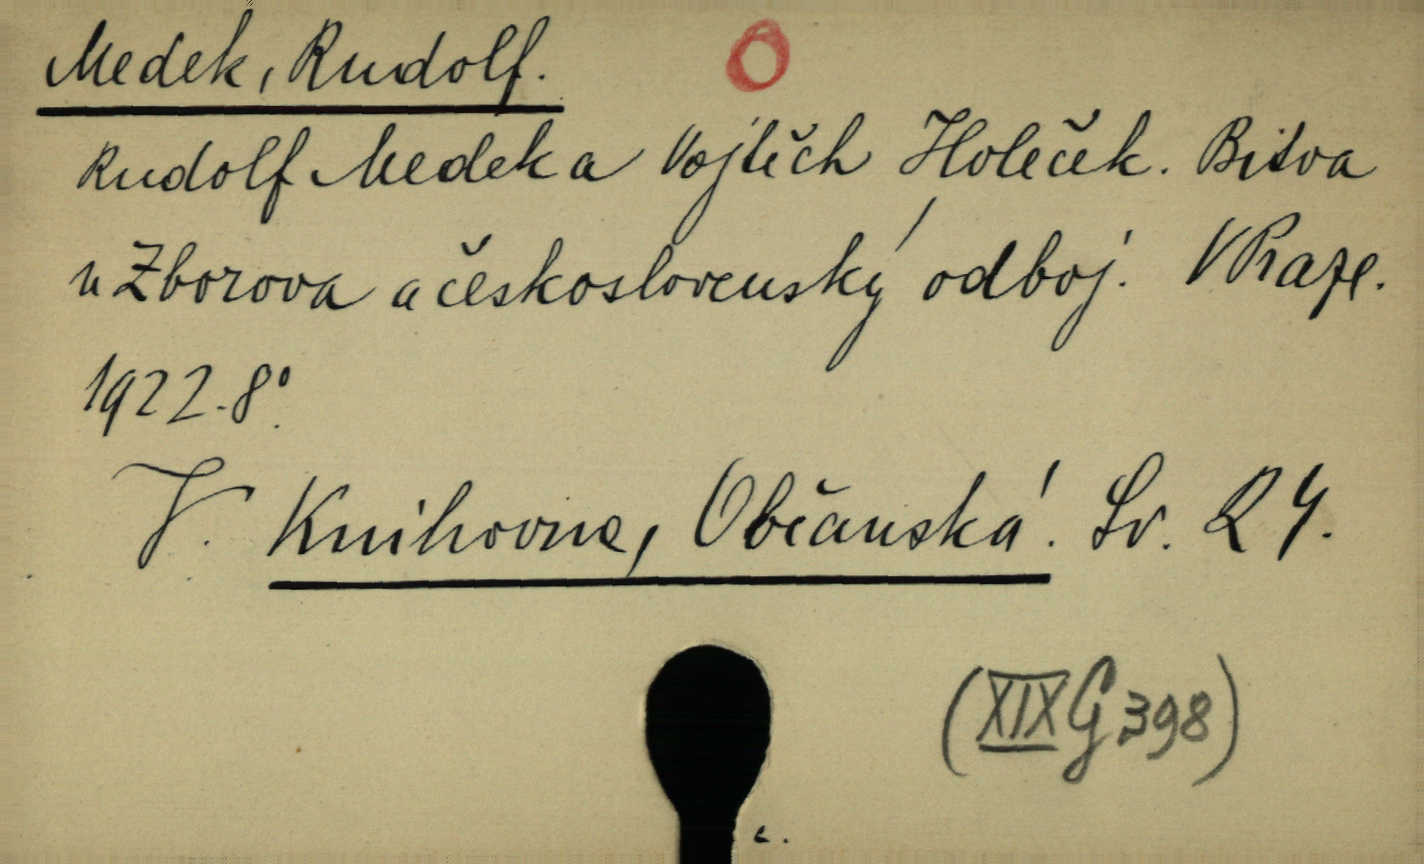 Medek, Rudolf. O
Rudolf Medek a Vojtěch Holeček. Bitva
u Zborova a československý odboj. V Praze.
1922. 8°.
V. Knihovna, Občanská. Sv. 24.
(XIX G 398)
c.